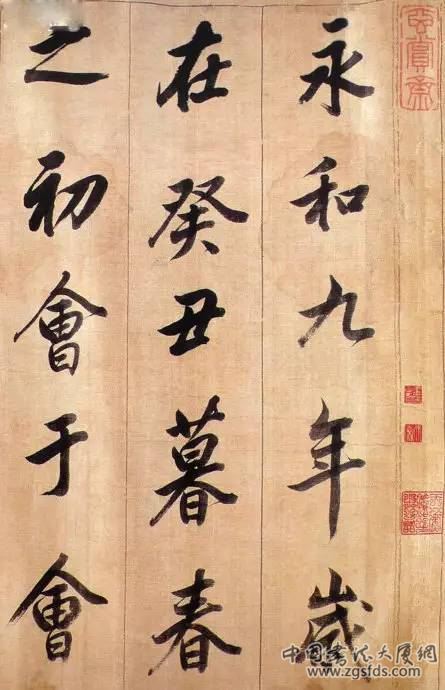 永和九年歲
在癸丑暮春
之初會于會
中国书法大厦網
www.zgsfds.com